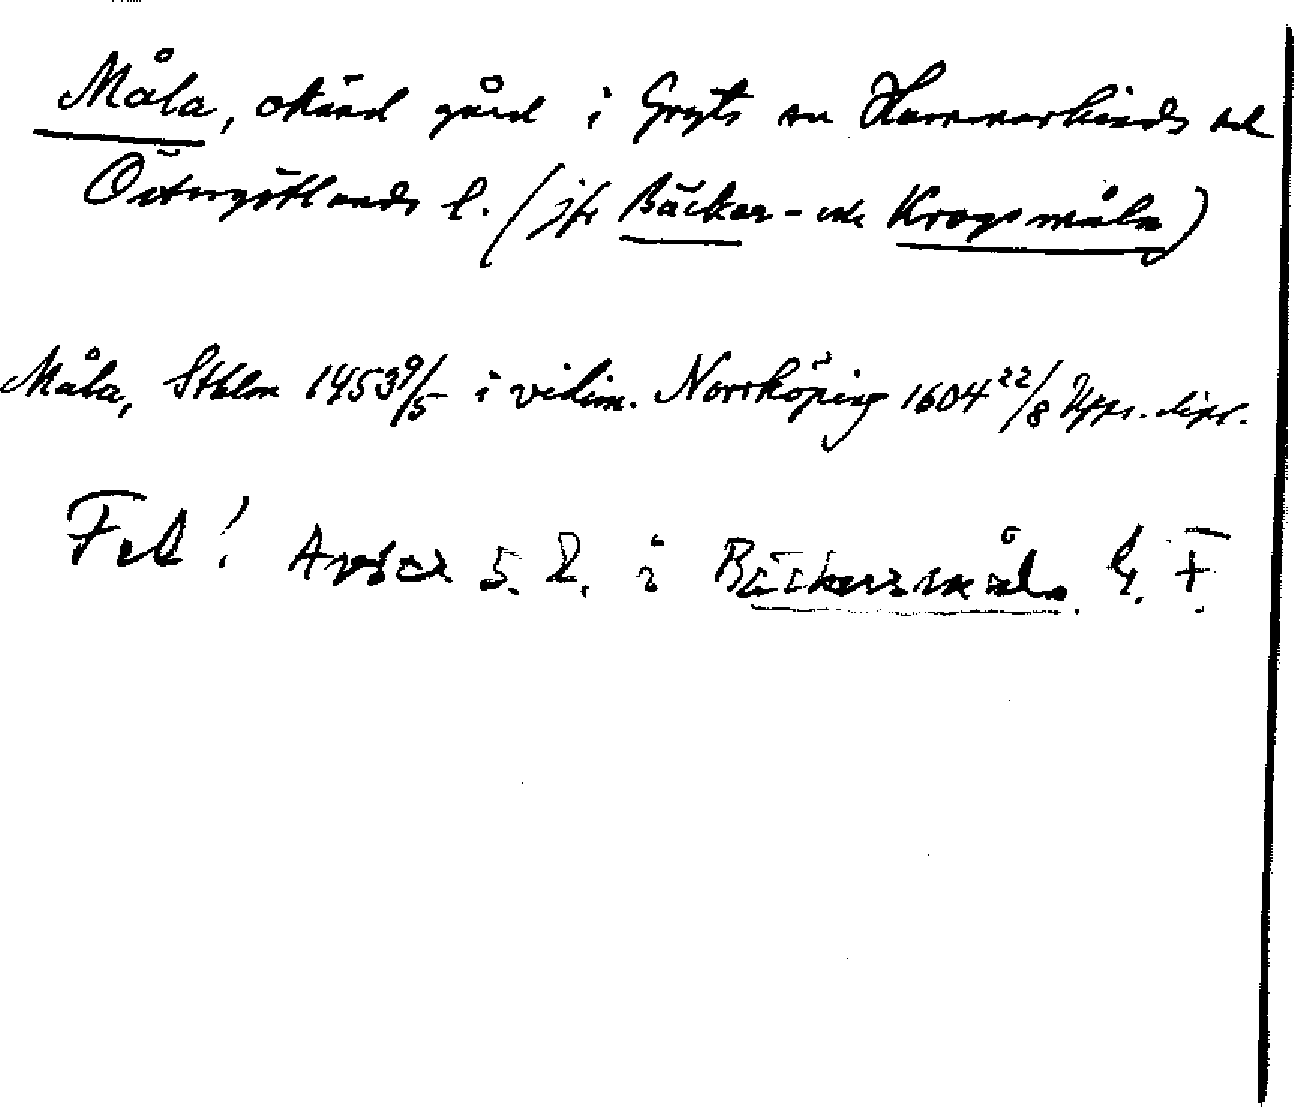 Måla, okänd gård i Gryts sn Hammarkinds hd
Östergötlands l. (jfr Bäcker- och Krogsmåla)
Måla, Sthlm 1453 9/5 i vidim. Norrköping 1604 22/8 Upps. dipl.
Fel! Avser i Bäckersmåla. G. F.